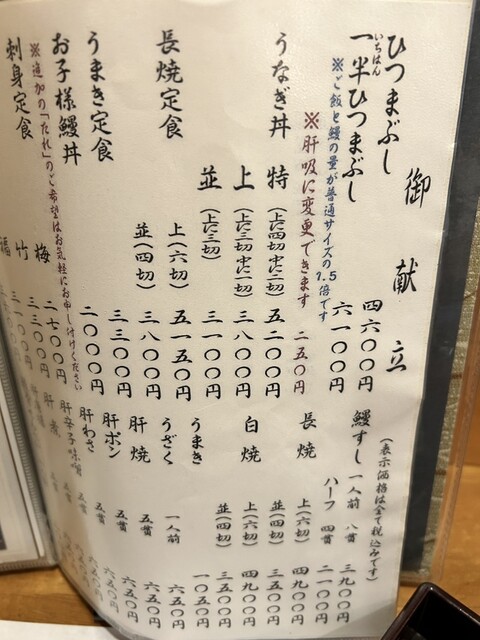 御献立
(表示価格は全て税込みです)
ひつまぶし 四六〇〇円
一半ひつまぶし 六一〇〇円
いちはん
※ご飯と鰻の量が普通サイズの1.5倍です
※肝吸に変更できます 二五〇円
うなぎ丼 特(上に四切中に二切) 五二〇〇円
上(上に三切中に一切) 三八〇〇円
並(上に三切) 三一〇〇円
長焼定食 上(六切) 五一五〇円
並(四切) 三八〇〇円
うまき定食 三三〇〇円
お子様鰻丼 二〇〇〇円
※追加の「たれ」のご希望はお気軽にお申し付けください
刺身定食 梅 二七〇〇円
竹 三三〇〇円
福
鰻すし 一人前 八貫 三九〇〇円
ハーフ 四貫 二一〇〇円
長焼 上(六切) 四九〇〇円
並(四切) 三五〇〇円
白焼 上(六切) 四九〇〇円
並(四切) 三五〇〇円
うまき 一〇五〇円
うざく 一人前 六五〇円
肝焼 五貫 六五〇円
肝ポン 五貫 六五〇円
肝わさ 五貫 六五〇円
肝辛子味噌
肝煮